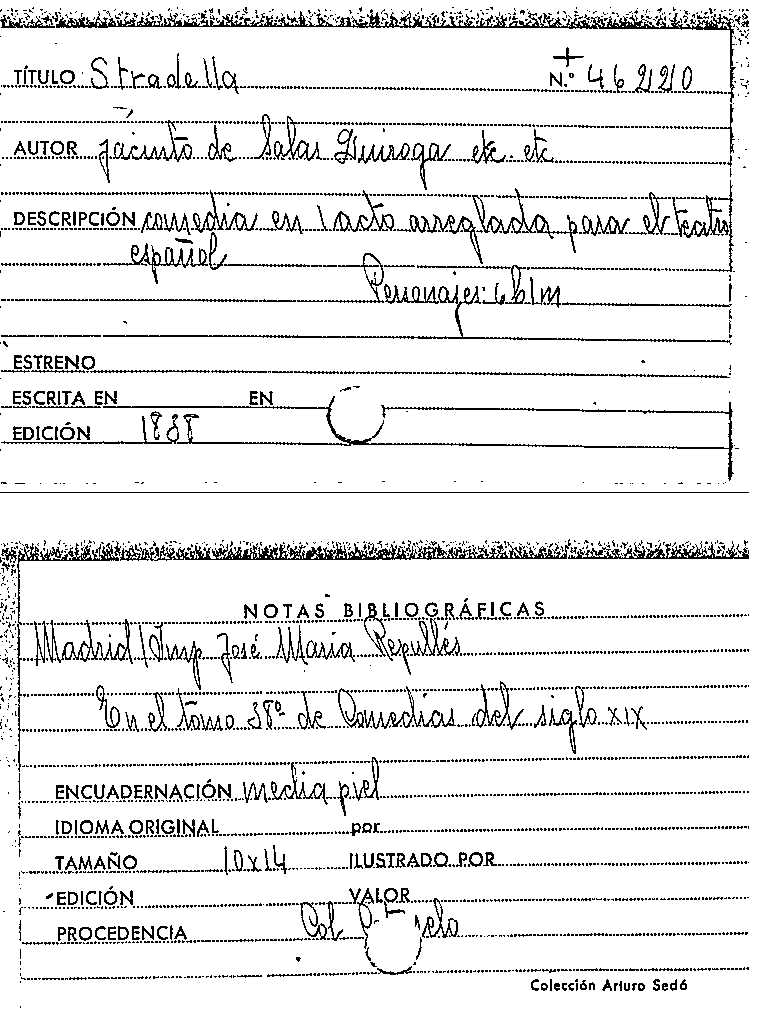 TÍTULO Stradella
+
N.º 46220
AUTOR Jacinto de Salas Quiroga etc. etc
DESCRIPCIÓN comedia en 1 acto arreglada para el teatro
español
Personajes: 6h1m
ESTRENO
ESCRITA EN EN
EDICIÓN 1838
NOTAS BIBLIOGRÁFICAS
Madrid/Imp José María Repullés
En el tomo 38º de Comedias del siglo XIX
ENCUADERNACIÓN media piel
IDIOMA ORIGINAL por
TAMAÑO 10x14 ILUSTRADO POR
EDICIÓN VALOR
PROCEDENCIA Col.
Colección Arturo Sedó